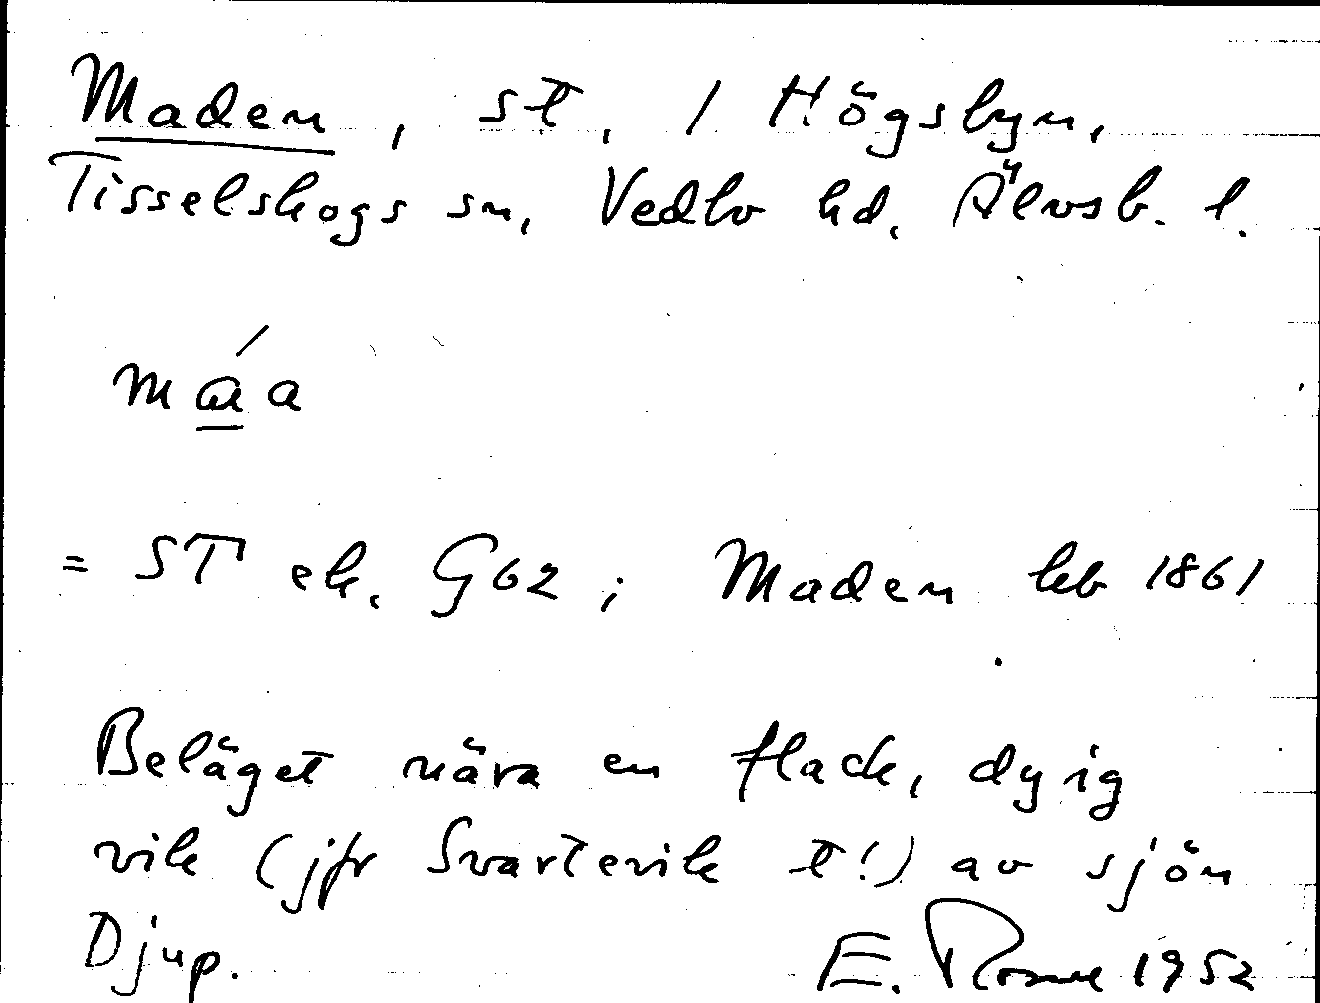 Maden, st, / Högsbyn,
Tisselskogs sn, Vedbo hd, Älvsb. l.
má̱a
= ST ek. G62; Maden hb 1861
Beläget nära en flack, dyig
vik (jfr Svartevik t!) av sjön
Djup. E. 1952